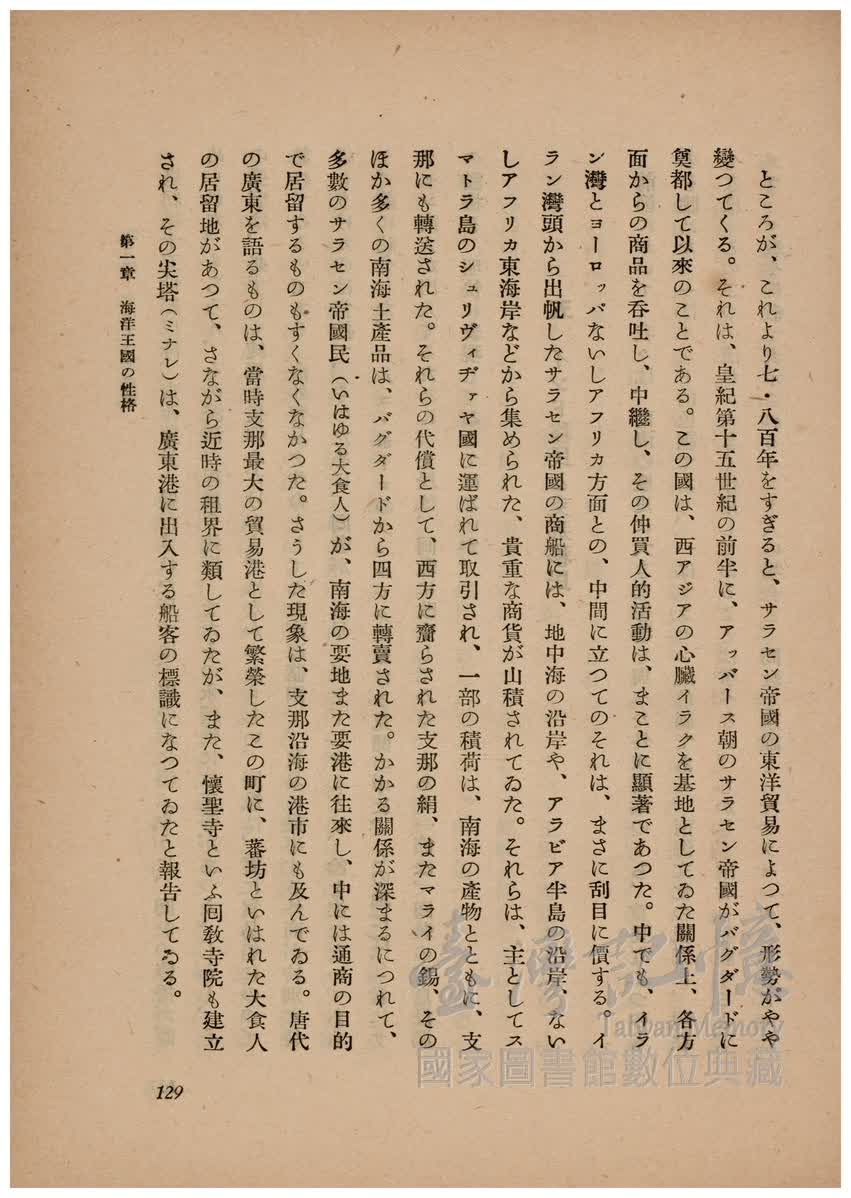 ところが、これより七・八百年をすぎると、サラセン帝國の東洋貿易によつて、形勢がやや
變つてくる。それは、皇紀第十五世紀の前半に、アッバース朝のサラセン帝國がバグダードに
奠都して以來のことである。この國は、西アジアの心臟イラクを基地としてゐた關係上、各方
面からの商品を呑吐し、中繼し、その仲買人的活動は、まことに顯著であつた。中でも、イラ
ン灣とヨーロッパないしアフリカ方面との、中間に立つてのそれは、まさに刮目に價する。イ
ラン灣頭から出帆したサラセン帝國の商船には、地中海の沿岸や、アラビア半島の沿岸、ない
しアフリカ東海岸などから集められた、貴重な商貨が山積されてゐた。それらは、主としてス
マトラ島のシュリヴィヂァヤ國に運ばれて取引され、一部の積荷は、南海の產物とともに、支
那にも轉送された。それらの代償として、西方に齎らされた支那の絹、またマライの錫、その
ほか多くの南海土產品は、バグダードから四方に轉賣された。かかる關係が深まるにつれて、
多數のサラセン帝國民（いはゆる大食人）が、南海の要地また要港に往來し、中には通商の目的
で居留するものもすくなくなかつた。さうした現象は、支那沿海の港市にも及んでゐる。唐代
の廣東を語るものは、當時支那最大の貿易港として繁榮したこの町に、蕃坊といはれた大食人
の居留地があつて、さながら近時の租界に類してゐたが、また、懷聖寺といふ囘敎寺院も建立
され、その尖塔（ミナレ）は、廣東港に出入する船客の標識になつてゐたと報告してゐる。
第一章　海洋王國の性格
129
臺灣記憶
Taiwan Memory
國家圖書館數位典藏